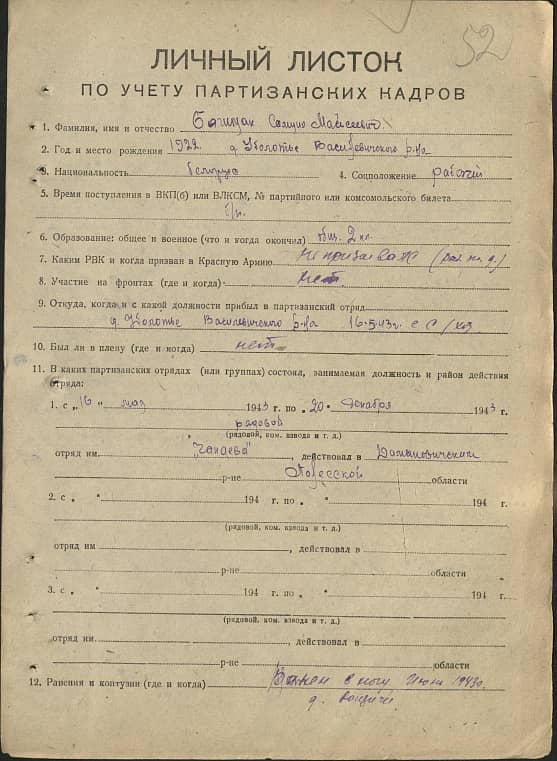 52
ЛИЧНЫЙ ЛИСТОК
ПО УЧЕТУ ПАРТИЗАНСКИХ КАДРОВ
1. Фамилия, имя и отчество
2. Год и место рождения 1922 д Золотье Василевичского р-на
3. Национальность белорус 4. Соцположение рабочий
5. Время поступления в ВКП(б) или ВЛКСМ, № партийного или комсомольского билета
б/п.
6. Образование: общее и военное (что и когда окончил) 2 кл.
7. Каким РВК и когда призван в Красную Армию не призывался
8. Участие на фронтах (где и когда) нет
9. Откуда, когда и с какой должности прибыл в партизанский отряд
д. Золотье Василевичского р-на 16.5.43 г. с
10. Был ли в плену (где и когда) нет
11. В каких партизанских отрядах (или группах) состоял, занимаемая должность и район действия
отряда:
1. с „16 " мая 1943 г. по „20 " декабря 1943 г.
рядовой
(рядовой, ком. взвода и т. д.)
отряд им. "Чапаева" , действовал в Домановичском
р-не Полесской области
2. с „ " 194 г. по „ " 194 г.
(рядовой, ком. взвода и т. д.)
отряд им , действовал в
р-не области
3. с „ " 194 г. по „ " 194 г.
(рядовой, ком. взвода и т. д.)
отряд им. , действовал в
р-не области
12. Ранения и контузии (где и когда) Ранен в ногу Июнь 1943г.
д.